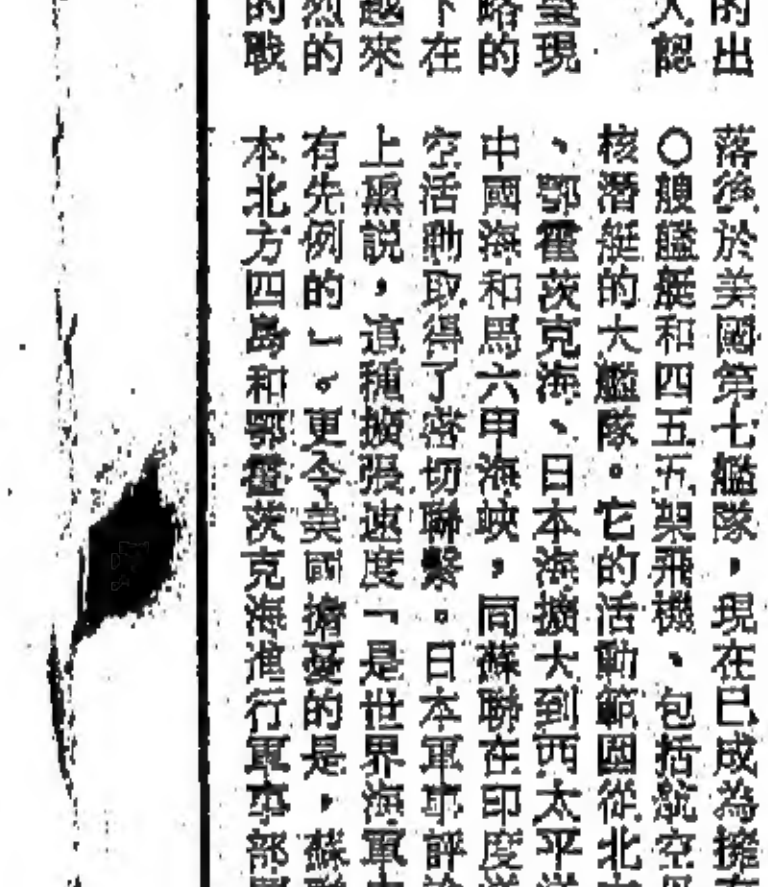 的出
人認
現
略的
下在
越來
烈的
的戰
落後於美國第七艦隊，現在已成為擁
〇艘艦艇和四五五架飛機、包括航空
核潛艇的大艦隊。它的活動範圍從北
、鄂霍茨克海、日本海擴大到西太平
中國海和馬六甲海峽，同蘇聯在印度
空活動取得了密切聯繫。日本軍事評
上薰説，這種擴張速度「是世界海軍
有先例的」。更令美國擔憂的是，蘇
本北方四島和鄂霍茨克海進行軍事部